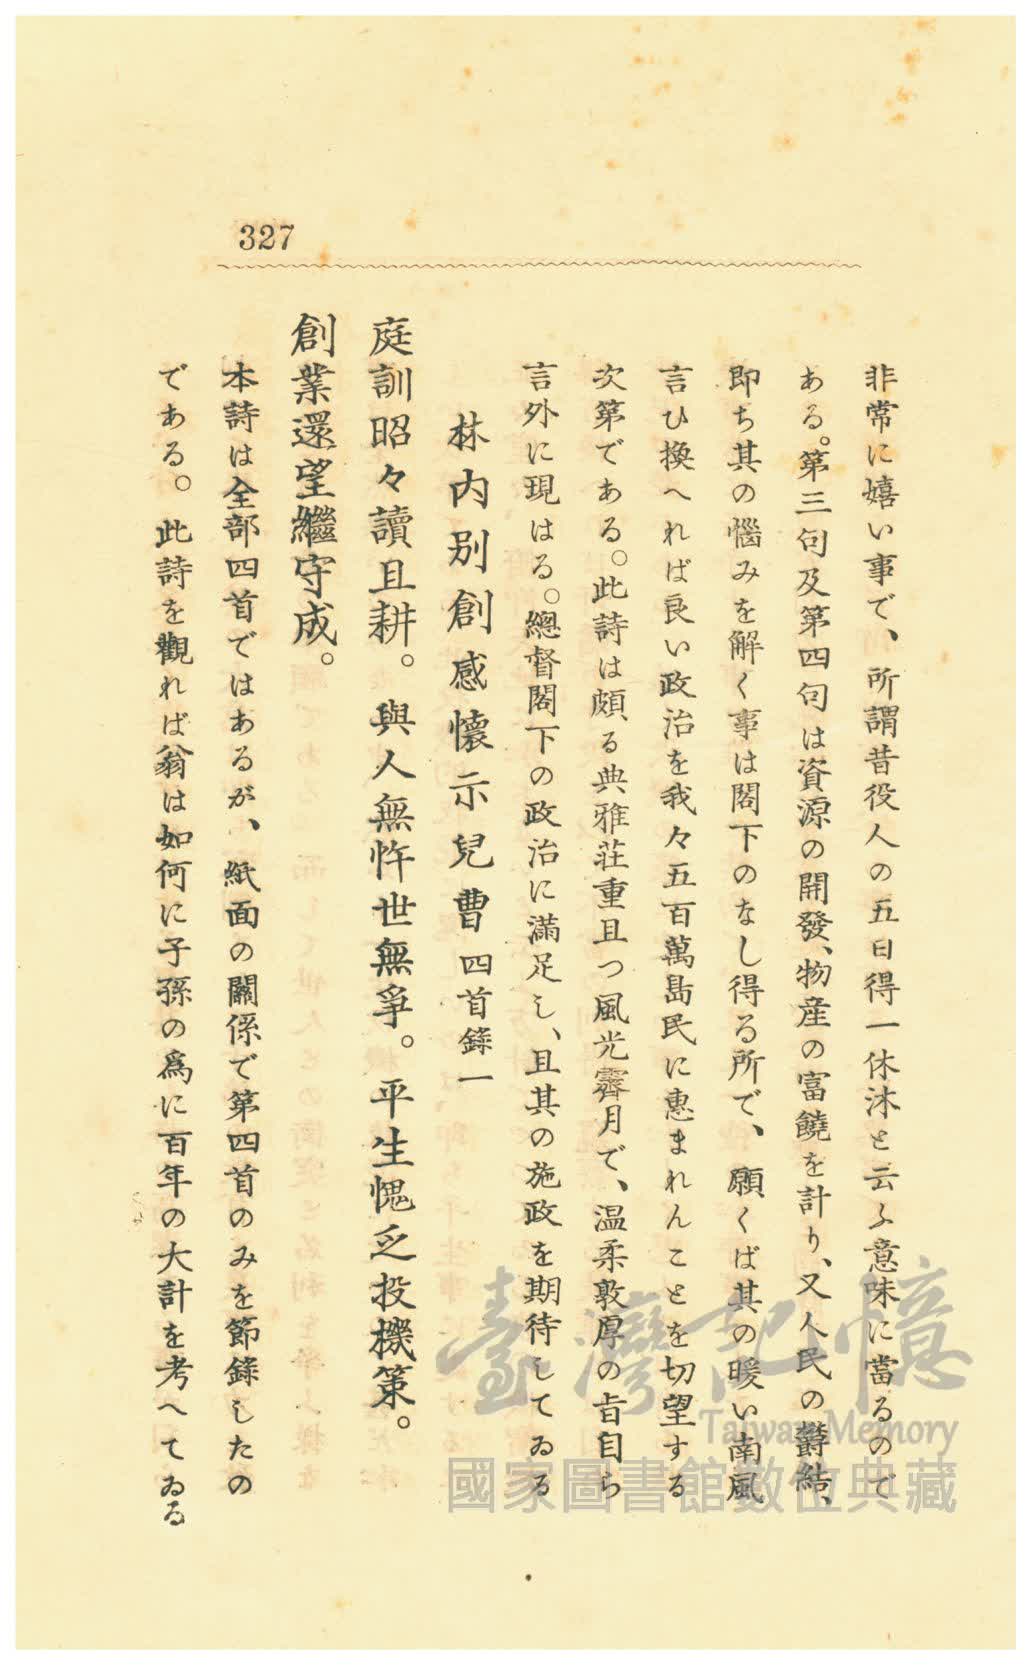 327
非常に嬉い事で、所謂昔役人の五日得一休沐と云ふ意味に當るので
ある。第三句及第四句は資源の開發、物産の富饒を計り、又人民の欝結、
即ち其の惱みを解く事は閣下のなし得る所で、願くば其の暖い南風
言ひ換へれば良い政治を我々五百萬島民に惠まれんことを切望する
次第である。此詩は頗る典雅莊重且つ風光霽月で、溫柔敦厚の旨自ら
言外に現はる。總督閣下の政治に滿足し、且其の施政を期待してゐる
林内別創感懷示兒曹 四首錄一
庭訓昭々讀且耕。與人無忤世無爭。平生愧乏投機策。
創業還望繼守成。
本詩は全部四首ではあるが、紙面の關係で第四首のみを節錄したの
である。此詩を觀れば翁は如何に子孫の爲に百年の大計を考へてゐる
臺灣記憶
Taiwan Memory
國家圖書館數位典藏